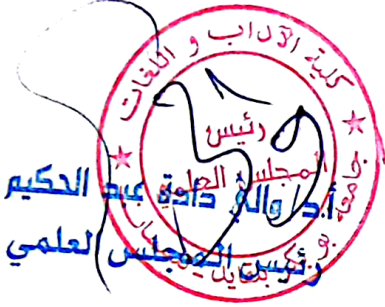 كلية الآداب و اللغات
رئيس
المجلس العلمي
أ.د/ والي دادة عبد الحكيم
رئيس المجلس العلمي